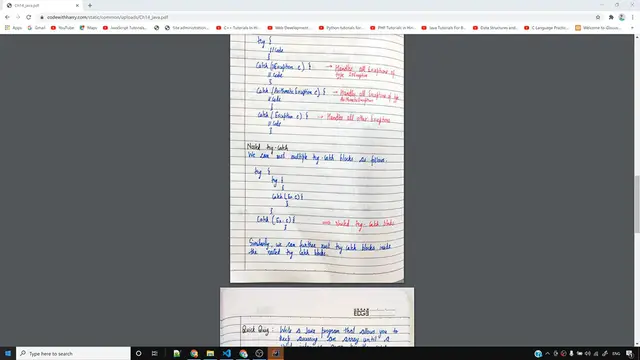 Ch14_Java.pdf
codewithharry.com/static/common/uploads/Ch14_Java.pdf
Apps
Gmail
YouTube
Maps
C++ Tutorials In H...
Web Development...
Python Tutorials Fo...
PHP Tutorials in Hi...
Java Tutorials For B...
Data Structures and...
C Language Practic...
Welcome to Discus...
try {
// code
}
catch (IOException e) { → Handles all Exceptions of type IOException
// code
}
catch (ArithmeticException e) { → Handles all Exceptions of type ArithmeticException
// code
}
catch (Exception e) { → Handles all other Exceptions
// code
}
Nested try-catch
We can nest multiple try-catch blocks as follows:
try {
try {
}
catch (Ex. e) {
}
}
catch (Ex. e) { ⇒ Nested try-catch blocks
}
Similarly we can further nest try catch blocks inside
the nested try catch blocks.
Quick Quiz: Write a Java program that allows you to
keep accessing an array until a
Type here to search
ENG